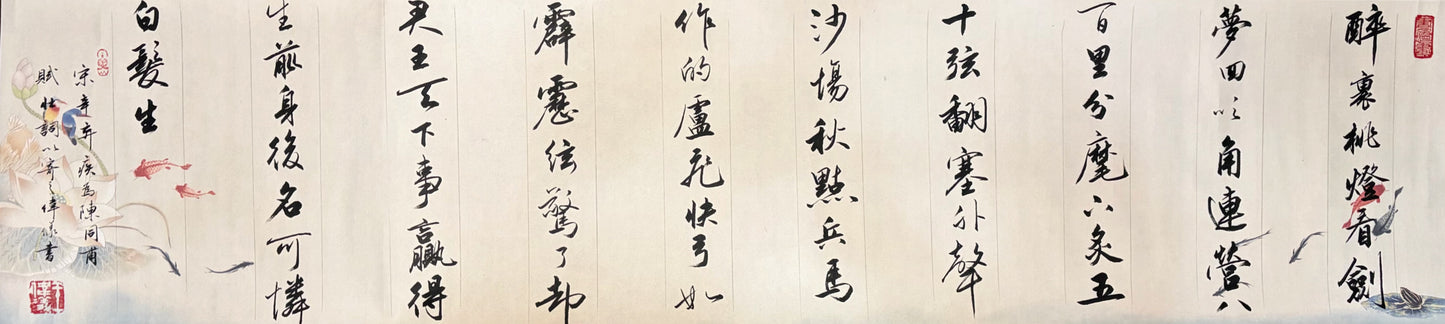 醉裏挑燈看劍
夢回吹角連營八
百里分麾下炙五
十弦翻塞外聲
沙場秋點兵馬
作的盧飛快弓如
霹靂弦驚了却
君王天下事贏得
生前身後名可憐
白髮生
宋辛弃疾為陳同甫
賦壯詞以寄之偉書